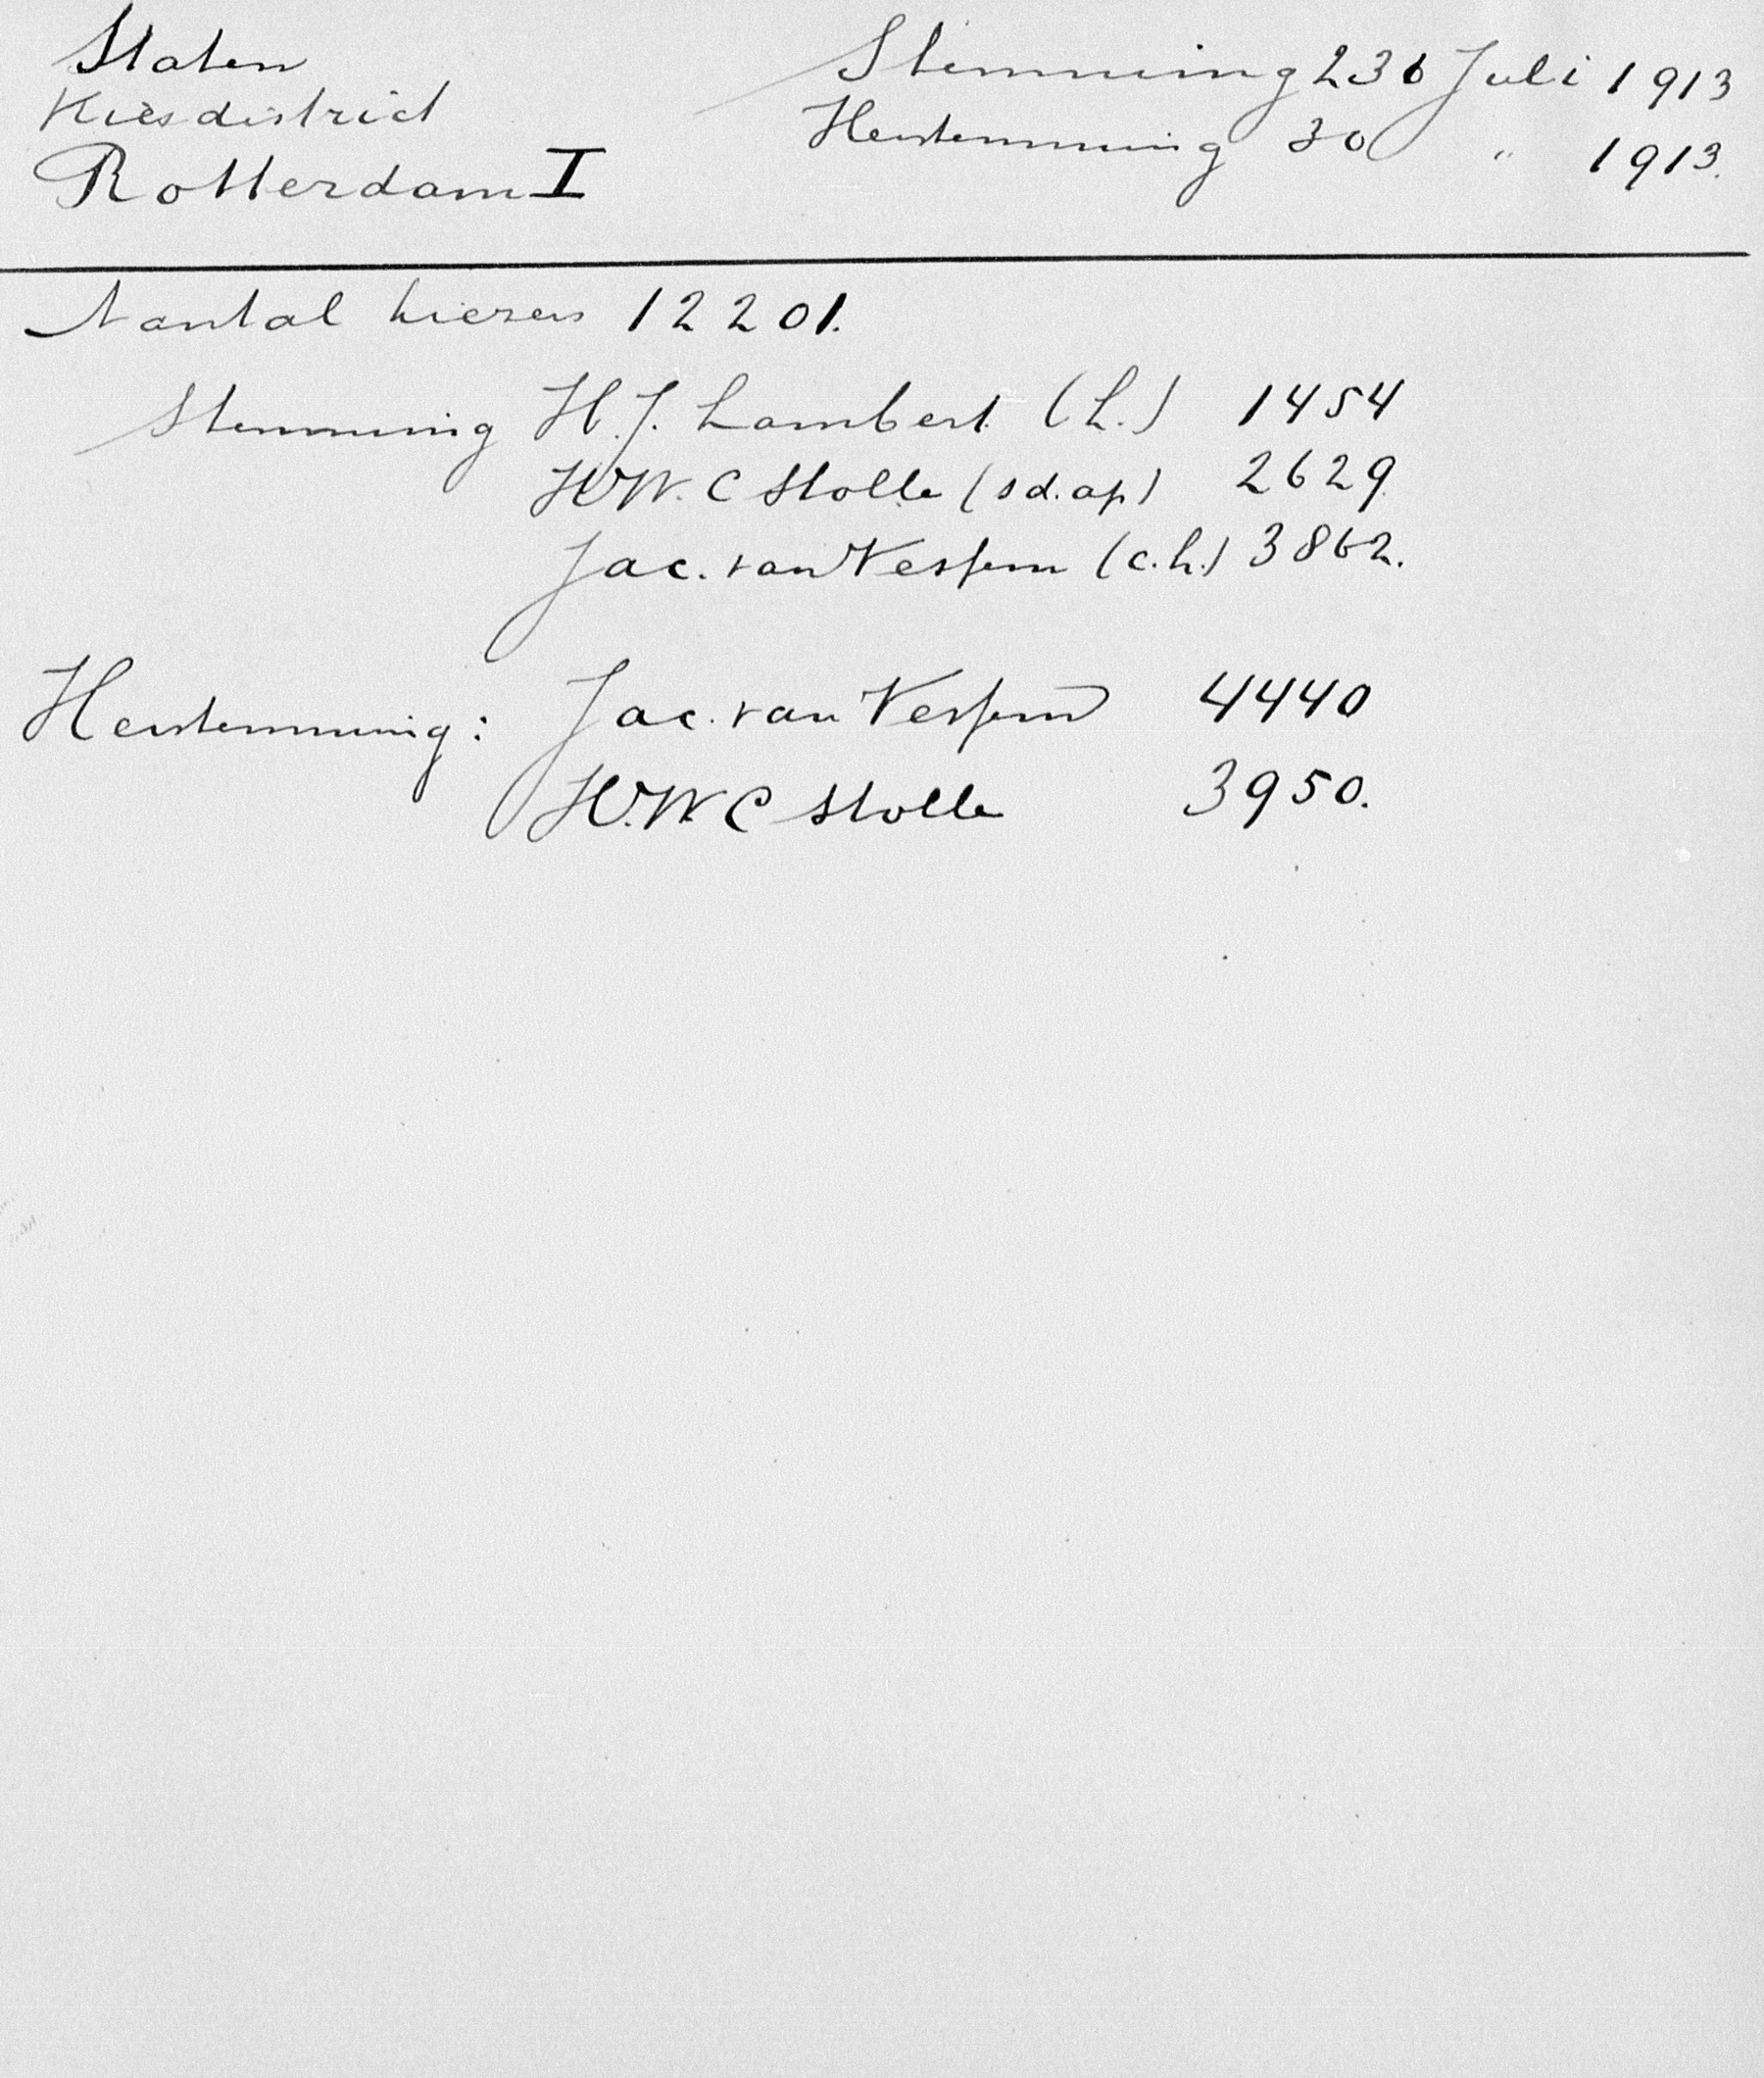 Staten
Kiesdistrict
Rotterdam I
Stemming 23 Juli 1913
Herstemming 30 " 1913.
Aantal kiezers 12201.
Stemming H.J. Lambert (L.) 1454
H.W.C Stolle (sd.ap) 2629
Jac. van Vessem (c.h.) 3862.
Herstemming: Jac. van Vessem 4440
H.W.C Stolle 3950.